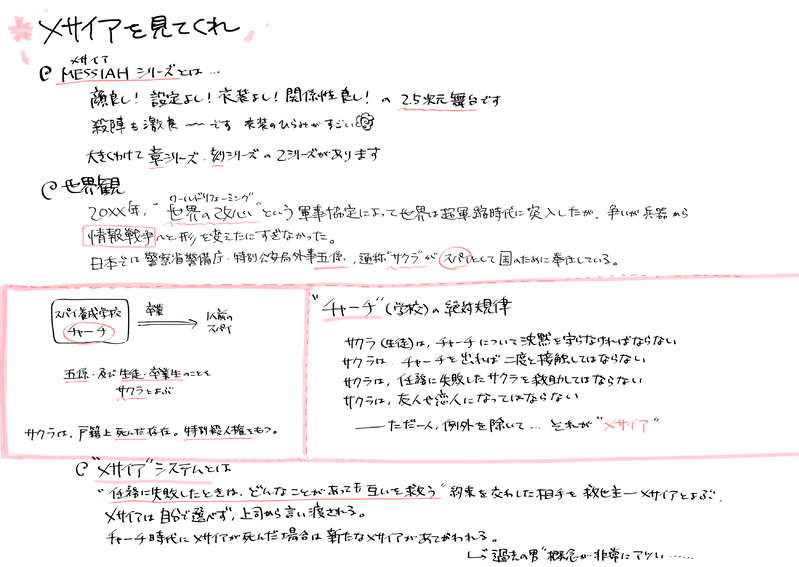 メサイアを見てくれ
メサイア
MESSIAH シリーズとは…
顔良し! 設定よし! 衣装よし! 関係性良し! の 2.5次元舞台です
殺陣も激良〜〜です 衣装のひらみがすごい
大きくわけて章シリーズ・刻シリーズの2シリーズがあります
世界観
ワールドリフォーミング
20XX年、"世界の改心"という軍事協定によって世界は超軍縮時代に突入したが、争いが兵器から
情報戦争へと形を変えたにすぎなかった。
日本では警察省警備庁・特別公安局外事五係、通称"サクラ"がスパイとして国のために奉仕している。
スパイ養成学校
チャーチ
卒業
1人前の
スパイ
五係・及び生徒・卒業生のことを
サクラとよぶ
サクラは、戸籍上死んだ存在。特別殺人権をもつ。
"チャーチ"(学校)の絶対規律
サクラ(生徒)は、チャーチについて沈黙を守らなければならない
サクラは、チャーチを出れば二度と接触してはならない
サクラは、任務に失敗したサクラを救助してはならない
サクラは、友人や恋人になってはならない
――ただ一人、例外を除いて… それが"メサイア"
"メサイア"システムとは
"任務に失敗したときは、どんなことがあっても互いを救う"約束を交わした相手を救世主―メサイアとよぶ。
メサイアは自分で選べず、上司から言い渡される。
チャーチ時代にメサイアが死んだ場合は新たなメサイアがあてがわれる。
"過去の男"概念が非常にアツい……